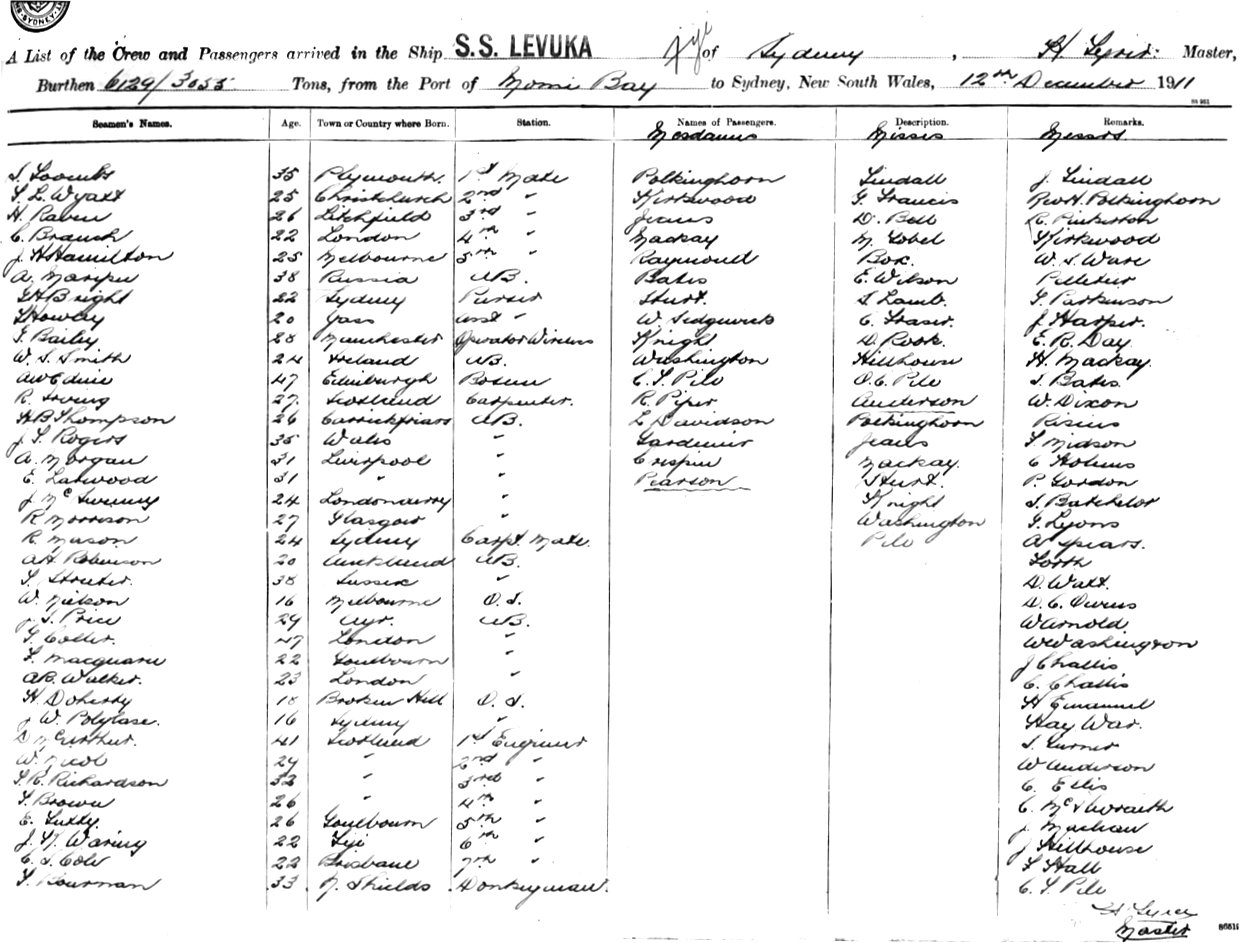 SYDNEY
A List of the Crew and Passengers arrived in the Ship S.S. LEVUKA of Sydney, H Master,
Burthen 6129/3055 Tons, from the Port of Momi Bay to Sydney, New South Wales, 12th December 1911
Seamen's Names. Age. Town or Country where Born. Station. Names of Passengers. Description. Remarks.
Mesdames Misses Messrs
35 Plymouth. 1st Mate Polkinghorn Tindall J. Tindall
S. L. Wyatt 25 Christchurch 2nd " Kirkwood G. Francis Rev H. Polkinghorn
H. Raven 26 Litchfield 3rd " Jeans D. Bell R. Pinkerton
C. Branch 22 London 4th " Mackay M. Gobel Kirkwood
J. H Hamilton 25 Melbourne 5th " Raymond Box. W. S. Ware
A. 38 Russia AB. Bates E. Wilson Pelletier
G H Bright 22 Sydney Purser Sturt. S. Lamb. Parkinson
Howley 20 Yass Asst " W. Sedgwick C. Fraser. J. Harper.
Bailey 28 Manchester Operator Wireless Knight D. Rook. E. R. Day.
W. S. Smith 24 Ireland AB. Washington Hillhouse H. Mackay.
A W Edine 47 Edinburgh Bosun C. S. Pile O. C. Pile S. Bates
R. Irving 27. Scotland Carpenter. R. Piper Anderson W. Dixon
H B Thompson 26 Carrickfriars AB. L Davidson Polkinghorn Risius
J. S. Rogers 35 Wales " Gardenir Jeans Midson
A. Morgan 31 Liverpool " Crispin Mackay. C
E. Larwood 31 " " Pearson Sturt. P. Gordon
J. Mc Sweeney 24 Londonderry " Knight S. Batchelor
R. Morrison 27 Glasgow " Washington G. Lyons
R. Mason 24 Sydney Carpt. Mate. Pile A. Spears.
A H. Robinson 20 Auckland AB. Forth
Streeter. 38 Sussex " D. Watt.
W. Nielson 16 Melbourne O. S. D. C. Owens
J. S. Price 29 Ayr. AB. W Arnold
Colter. 47 London " W Washington
Macquarie 22 Goulbourn " J Challis
A B. Walker. 23 London " C. Challis
H. Doherty 18 Broken Hill O. S. H Emanuel
J W. Polglase. 16 Sydney " Hay War.
D McArthur. 41 Scotland 1st Engineer S. Turner
W. Nicol 29 " 2nd " W Anderson
S. R. Richardson 32 " 3rd " C. Ellis
Brown 26 " 4th " C.
E. Tutty 26 Goulbourn 5th " J. Machan
J. W. Waring 22 Fiji 6th " J Hillhouse
C. S. Cole 22 Brisbane 7th " Hall
Bourman 33 N. Shields Donkeyman. C. S. Pile
Master